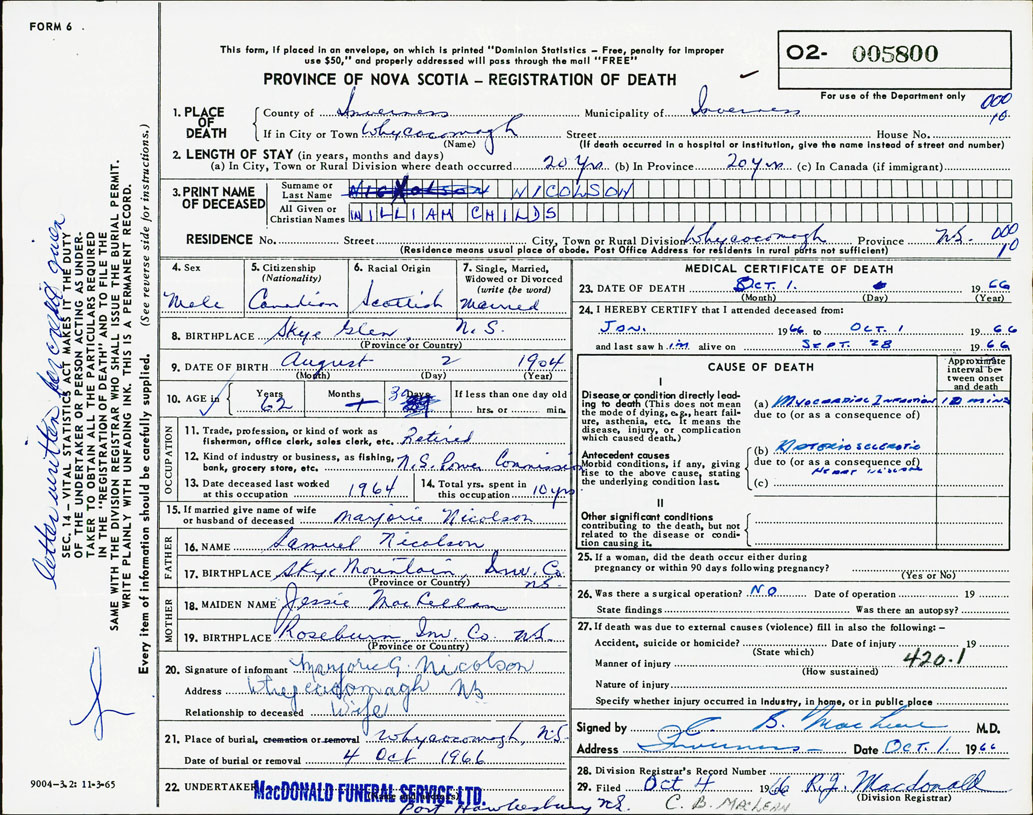 FORM 6 .
This form, if placed in an envelope, on which is printed "Dominion Statistics – Free, penalty for improper
use $50," and properly addressed will pass through the mail "FREE"
PROVINCE OF NOVA SCOTIA – REGISTRATION OF DEATH
O2- 005800
For use of the Department only
000
10.
1. PLACE OF DEATH
County of Inverness Municipality of Inverness
If in City or Town Whycocomagh Street House No.
(Name) (If death occurred in a hospital or institution, give the name instead of street and number)
2. LENGTH OF STAY (in years, months and days)
(a) In City, Town or Rural Division where death occurred 20 Yrs. (b) In Province 20 yrs. (c) In Canada (if immigrant)
3. PRINT NAME OF DECEASED
Surname or Last Name NICOLSON
All Given or Christian Names WILLIAM CHILDS
RESIDENCE No. Street City, Town or Rural Division Whycocomagh Province N.S. 000
10
(Residence means usual place of abode. Post Office Address for residents in rural parts not sufficient)
4. Sex
Male
5. Citizenship
(Nationality)
Canadian
6. Racial Origin
Scottish
7. Single, Married,
Widowed or Divorced
(write the word)
Married
8. BIRTHPLACE Skye Glen N.S.
(Province or Country)
9. DATE OF BIRTH August 2 1904
(Month) (Day) (Year)
10. AGE in Years 62 Months 1 Days 30 If less than one day old
hrs. or min.
OCCUPATION
11. Trade, profession, or kind of work as
fisherman, office clerk, sales clerk, etc. Retired
12. Kind of industry or business, as fishing,
bank, grocery store, etc. N.S. Power Commission
13. Date deceased last worked
at this occupation 1964
14. Total yrs. spent in
this occupation 10 yrs.
15. If married give name of wife
or husband of deceased Marjorie Nicolson
FATHER
16. NAME Samuel Nicolson
17. BIRTHPLACE Skye Mountain, Inv. Co.
(Province or Country) N.S.
MOTHER
18. MAIDEN NAME Jessie MacLellan
19. BIRTHPLACE Roseburn Inv. Co. N.S.
(Province or Country)
20. Signature of informant Marjorie G. Nicolson
Address Whycocomagh NS
Relationship to deceased Wife
21. Place of burial, cremation or removal Whycocomagh, N.S.
Date of burial or removal 4 Oct 1966
22. UNDERTAKER MacDONALD FUNERAL SERVICE LTD.
Port Hawkesbury N.S.
MEDICAL CERTIFICATE OF DEATH
23. DATE OF DEATH OCT. 1. 1966
(Month) (Day) (Year)
24. I HEREBY CERTIFY that I attended deceased from:
JAN. 1966 to OCT. 1 1966
and last saw him alive on SEPT. 28 1966
CAUSE OF DEATH
Approximate interval between onset and death
I
Disease or condition directly leading to death (This does not mean the mode of dying, e.g., heart failure, asthenia, etc. It means the disease, injury, or complication which caused death.)
(a) MYOCARDIAL INFARCTION 10 mins
due to (or as a consequence of)
Antecedent causes
Morbid conditions, if any, giving rise to the above cause, stating the underlying condition last.
(b) ARTERIOSCLEROTIC
due to (or as a consequence of)
HEART DISEASE
(c)
II
Other significant conditions
contributing to the death, but not related to the disease or condition causing it.
25. If a woman, did the death occur either during
pregnancy or within 90 days following pregnancy?
(Yes or No)
26. Was there a surgical operation? NO Date of operation 19
State findings Was there an autopsy?
27. If death was due to external causes (violence) fill in also the following: –
Accident, suicide or homicide? Date of injury 19
(State which)
Manner of injury 420.1
(How sustained)
Nature of injury
Specify whether injury occurred in Industry, in home, or in public place
Signed by C. B. MacLean M.D.
Address Inverness Date OCT. 1. 1966
28. Division Registrar's Record Number
29. Filed Oct 4 1966 R.J. Macdonald
(Division Registrar)
C. B. MACLEAN
letter written per credit
SEC. 14 – VITAL STATISTICS ACT MAKES IT THE DUTY
OF THE UNDERTAKER OR PERSON ACTING AS UNDER-
TAKER TO OBTAIN ALL THE PARTICULARS REQUIRED
IN THE "REGISTRATION OF DEATH" AND TO FILE THE
SAME WITH THE DIVISION REGISTRAR WHO SHALL ISSUE THE BURIAL PERMIT.
WRITE PLAINLY WITH UNFADING INK. THIS IS A PERMANENT RECORD.
Every item of information should be carefully supplied. (See reverse side for instructions.)
9004-3.2: 11-3-65